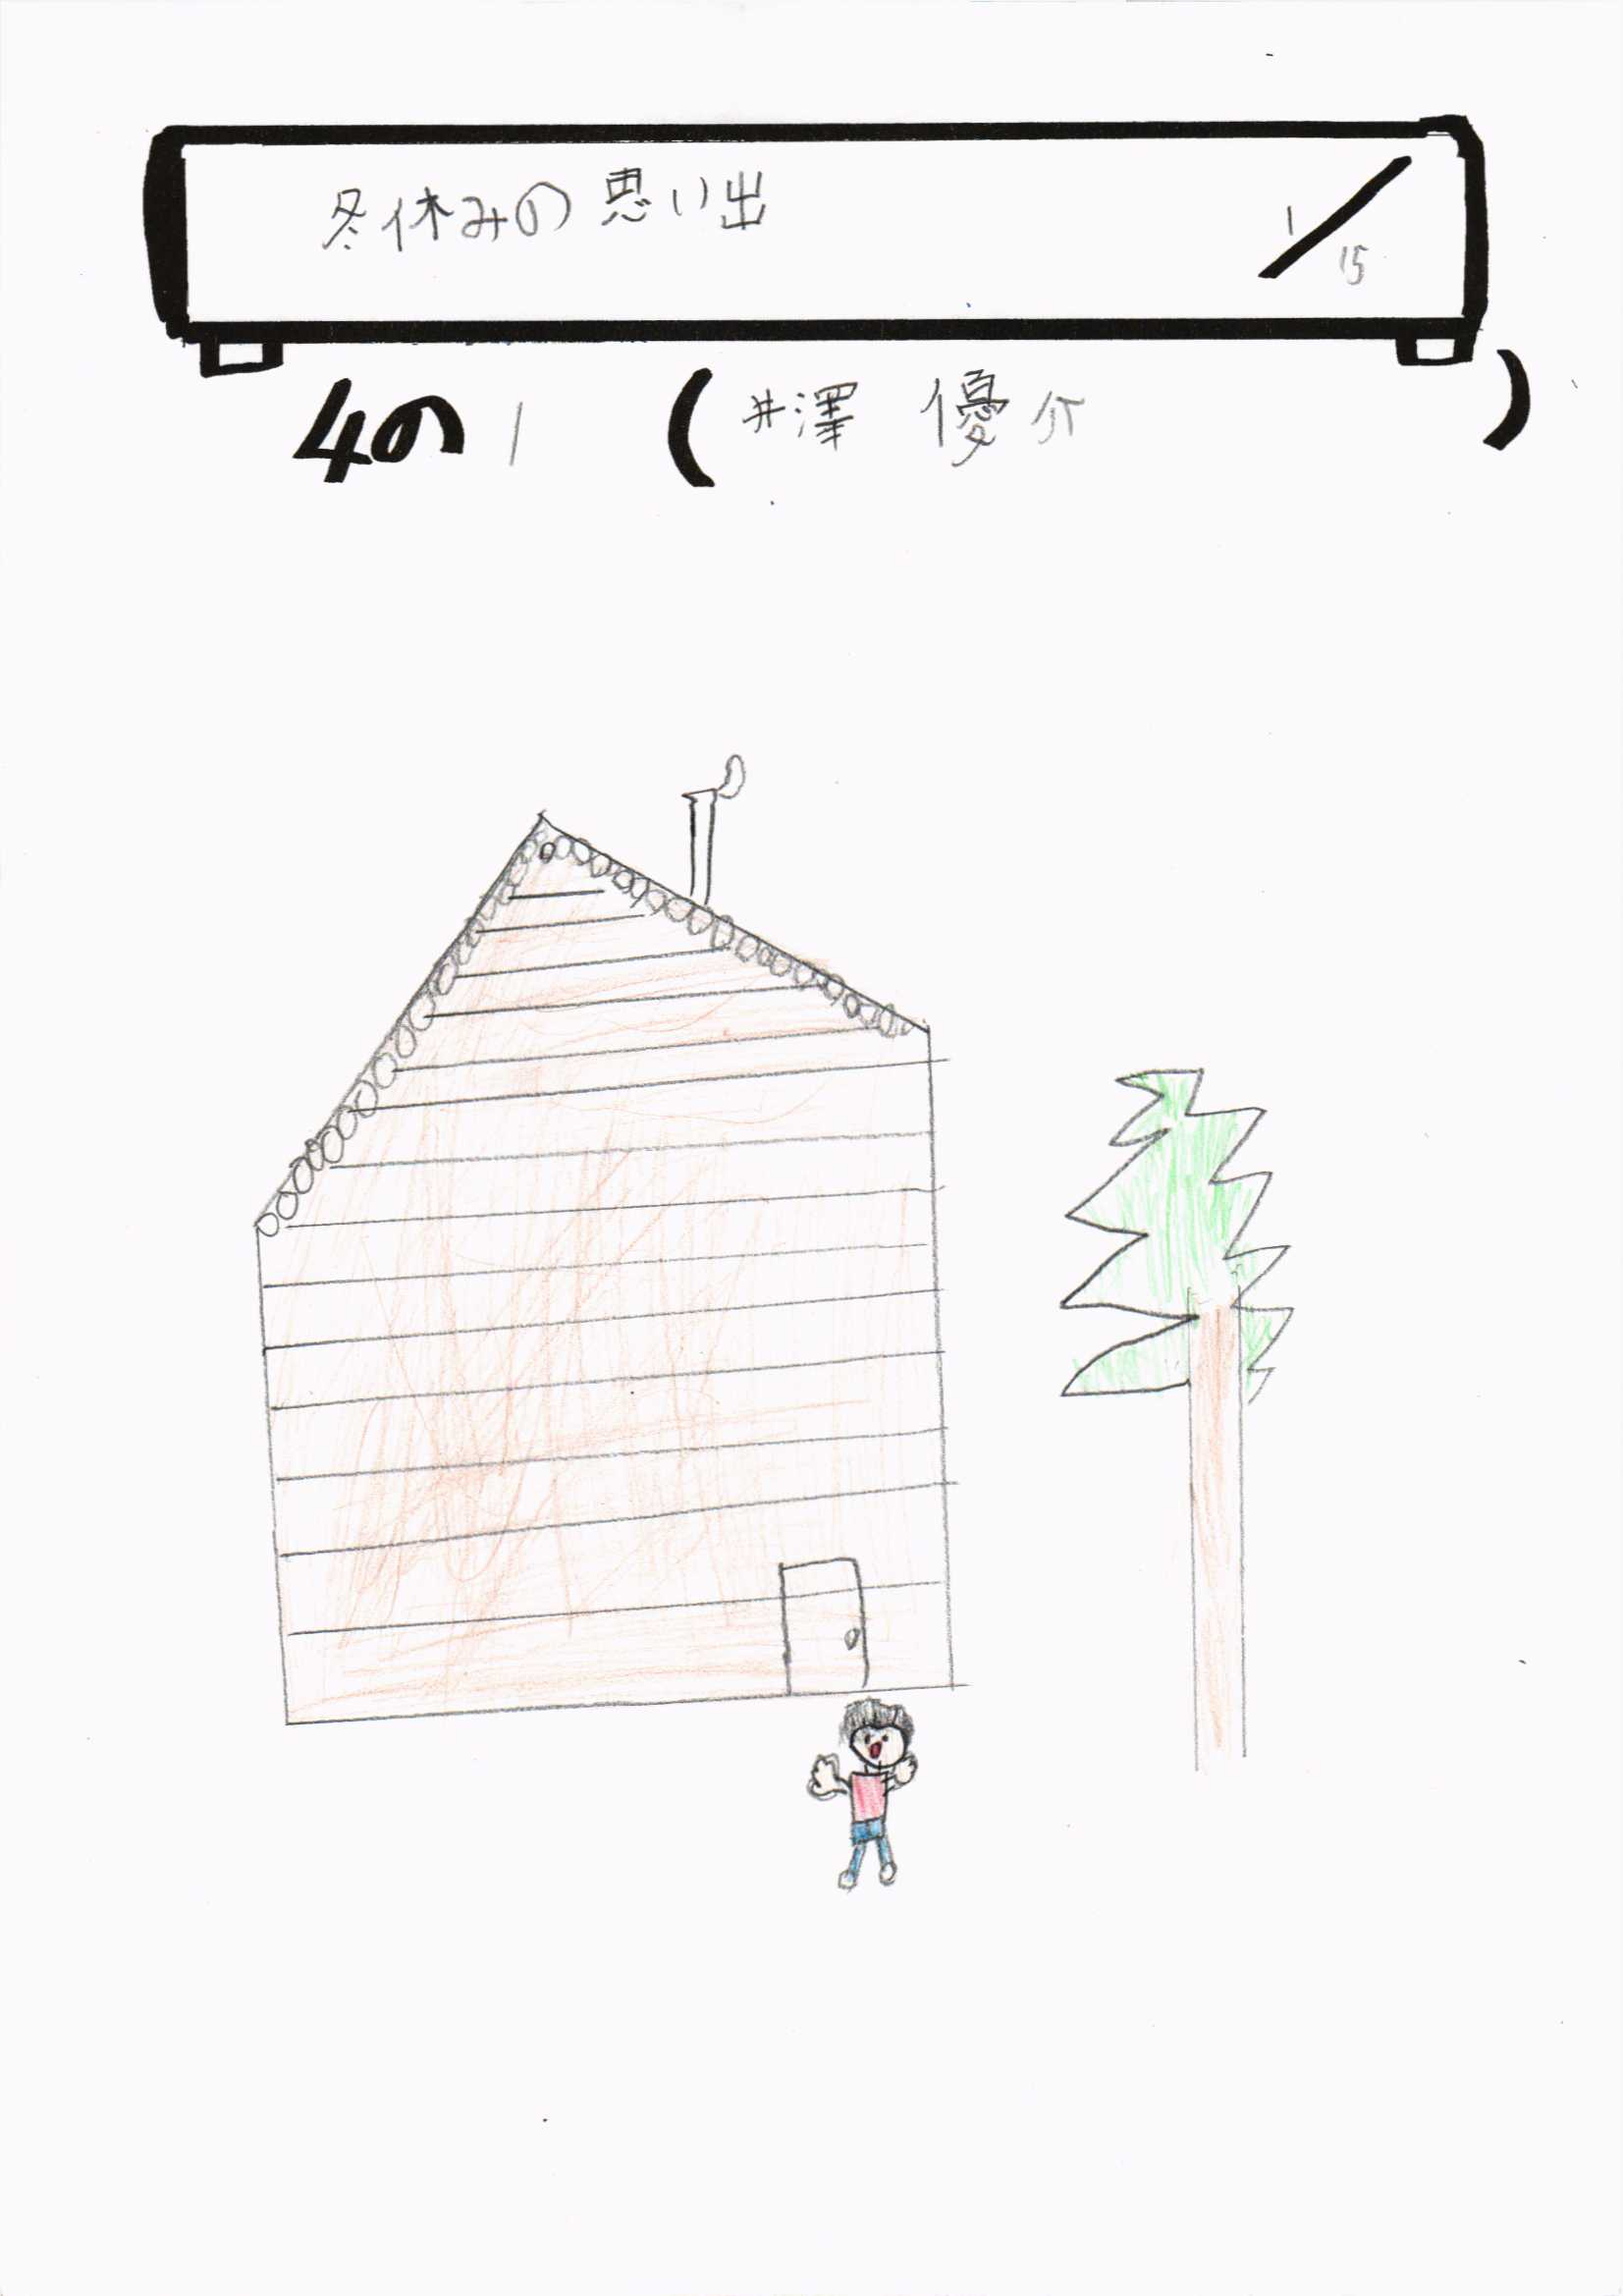 冬休みの思い出 1/15
4の1 (井澤 優介)